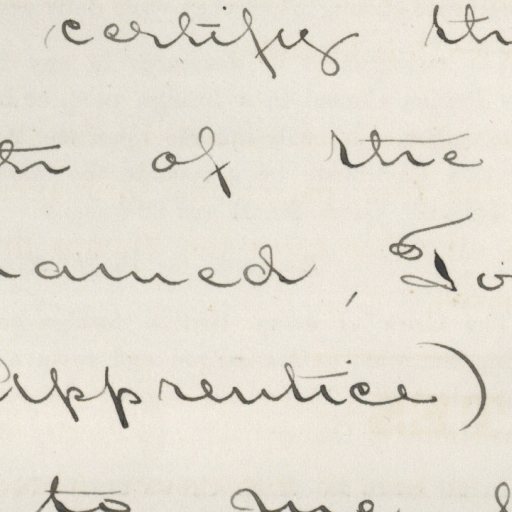 certify th
th of the
named, To
Apprentice)
to me